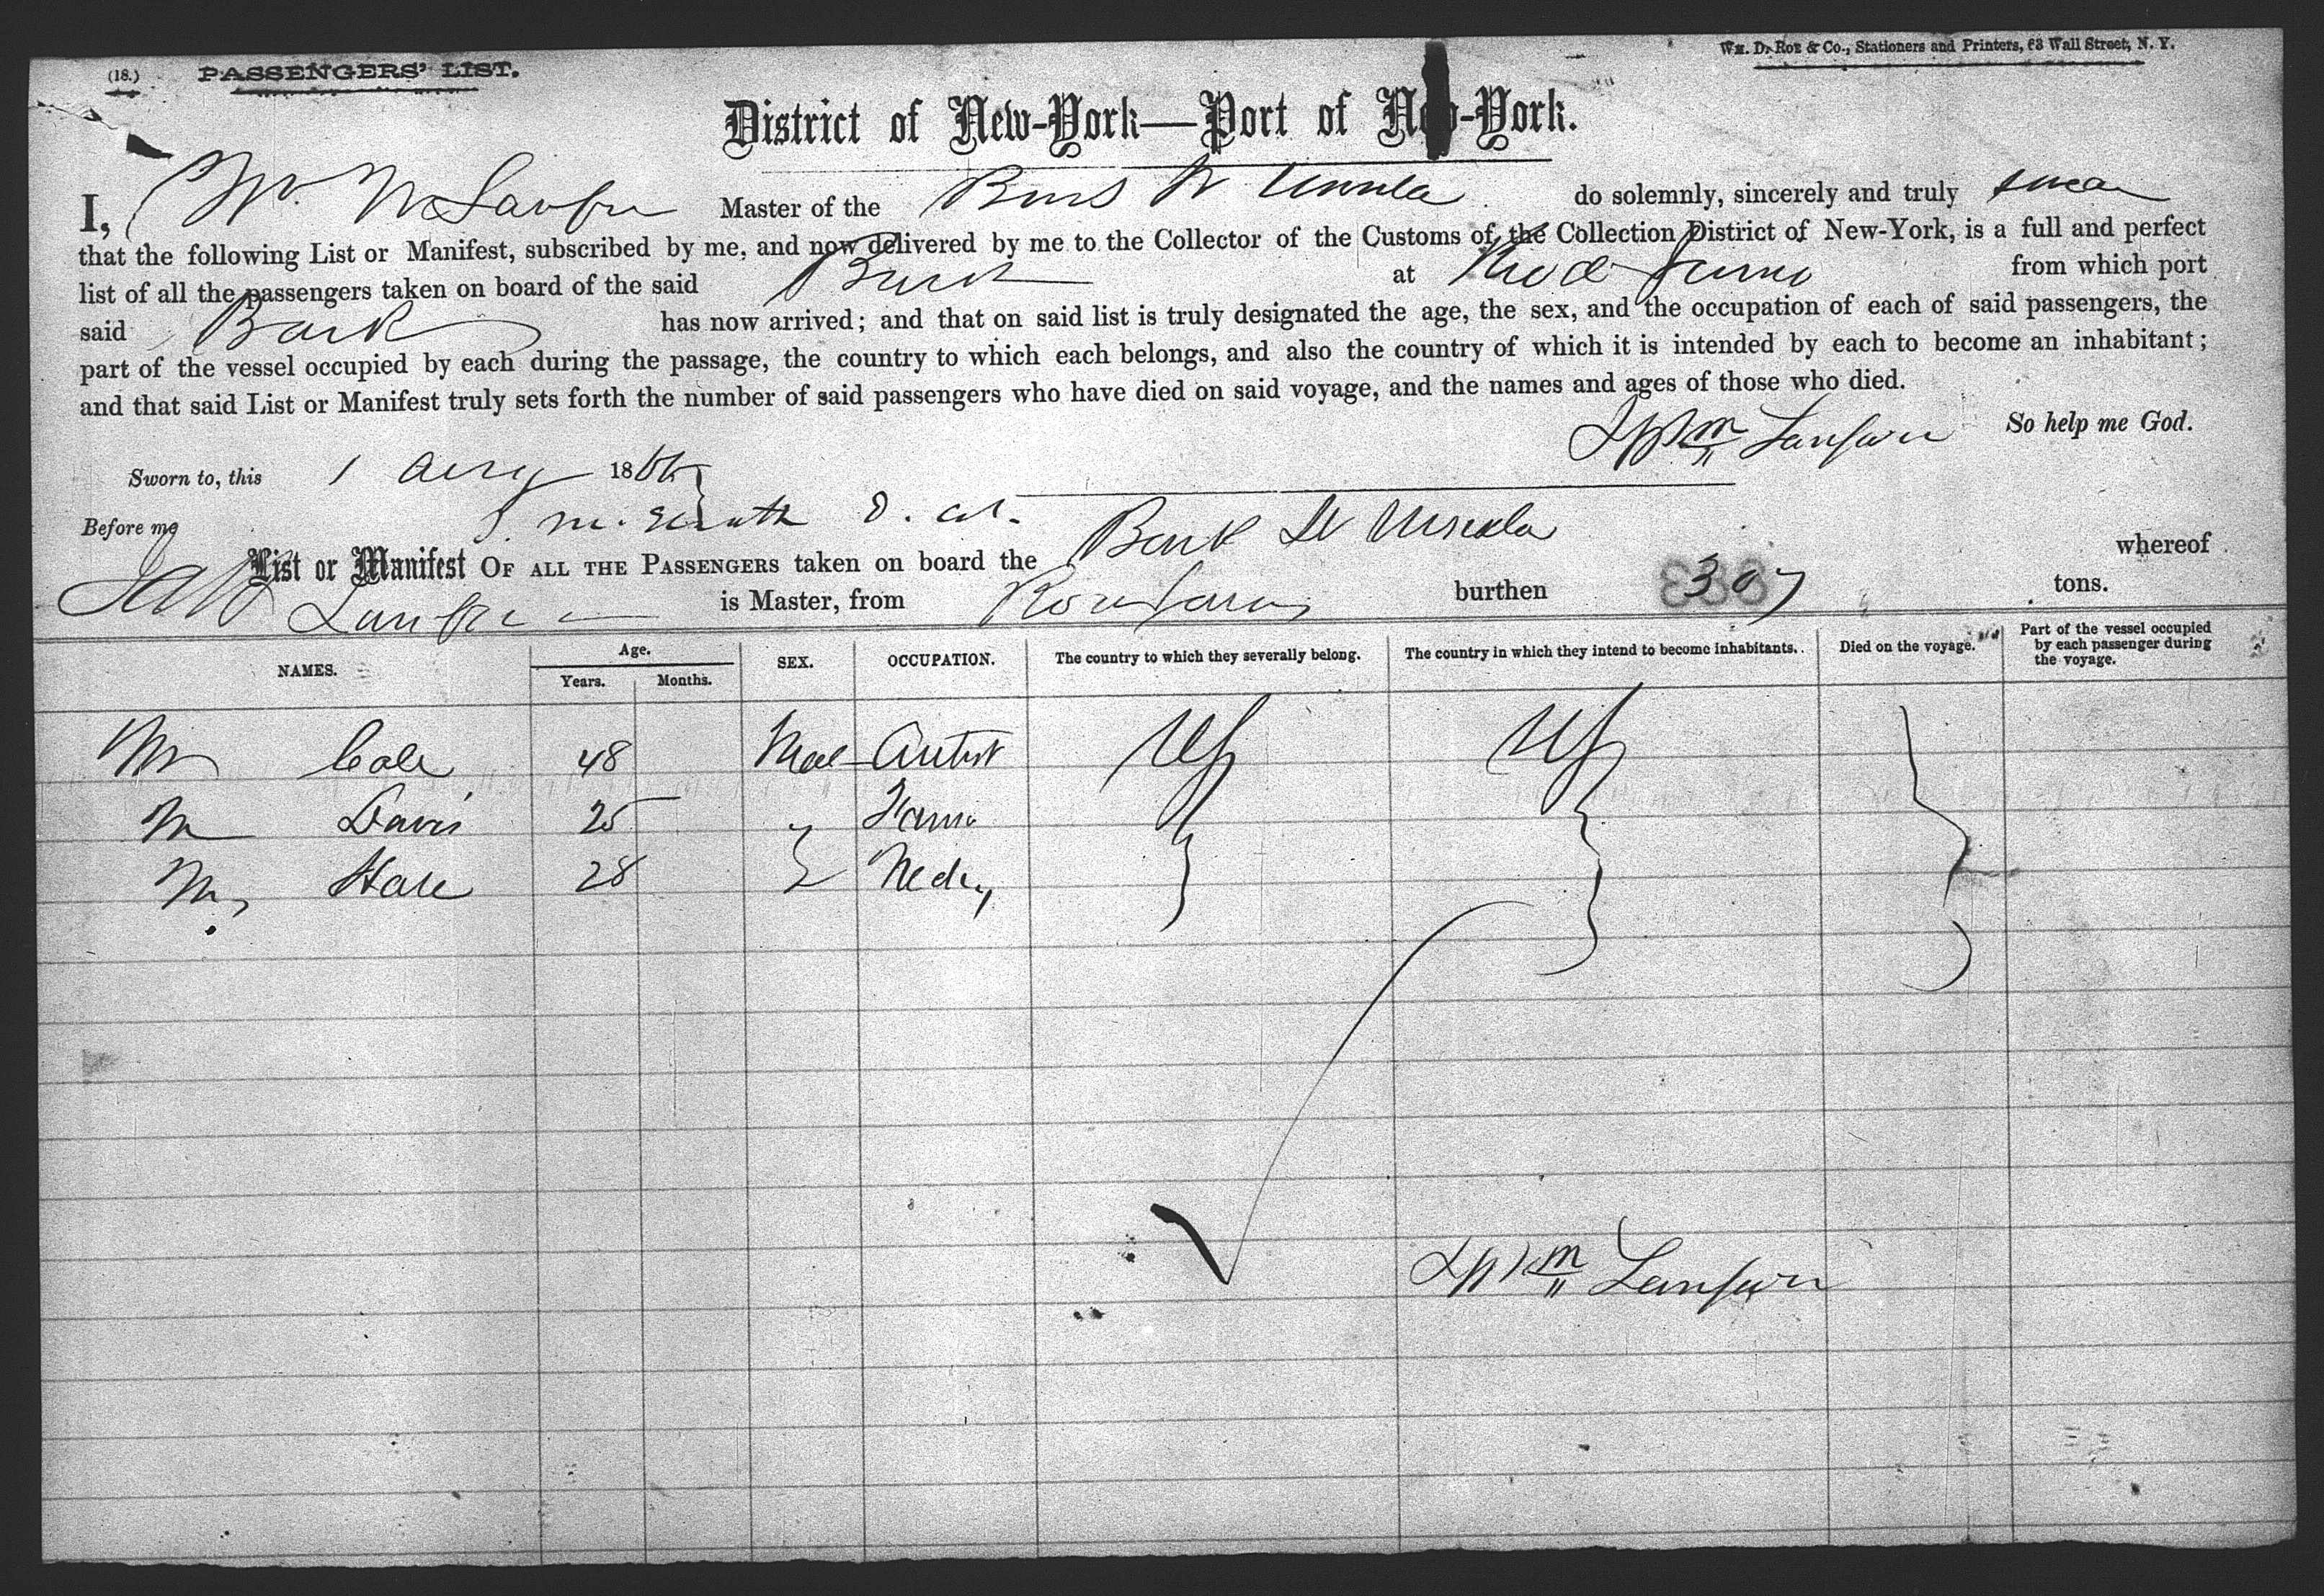 (18.) PASSENGERS' LIST.
WM. D. ROE & Co., Stationers and Printers, 63 Wall Street, N. Y.
District of New-York—Port of New-York.
I, Master of the do solemnly, sincerely and truly swear
that the following List or Manifest, subscribed by me, and now delivered by me to the Collector of the Customs of the Collection District of New-York, is a full and perfect
list of all the passengers taken on board of the said Bark at from which port
said Bark has now arrived; and that on said list is truly designated the age, the sex, and the occupation of each of said passengers, the
part of the vessel occupied by each during the passage, the country to which each belongs, and also the country of which it is intended by each to become an inhabitant;
and that said List or Manifest truly sets forth the number of said passengers who have died on said voyage, and the names and ages of those who died.
So help me God.
Sworn to, this 1 Aug 1866
Before me
List or Manifest OF ALL THE PASSENGERS taken on board the Bark St Ursula whereof
is Master, from burthen 307 tons.
NAMES. Age. Years. Months. SEX. OCCUPATION. The country to which they severally belong. The country in which they intend to become inhabitants. Died on the voyage. Part of the vessel occupied by each passenger during the voyage.
Mr Cole 48 Male Artist US US
M Davis 25
M Hale 28